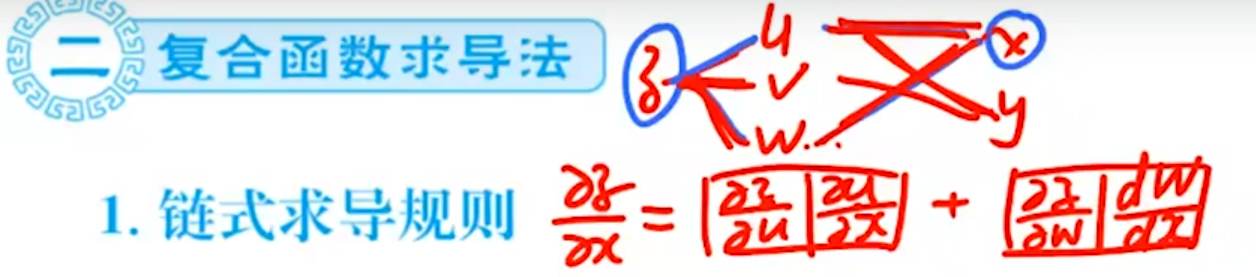 二 复合函数求导法
z u v w.. x y
1. 链式求导规则 ∂z/∂x = ∂z/∂u ∂u/∂x + ∂z/∂w dw/dx